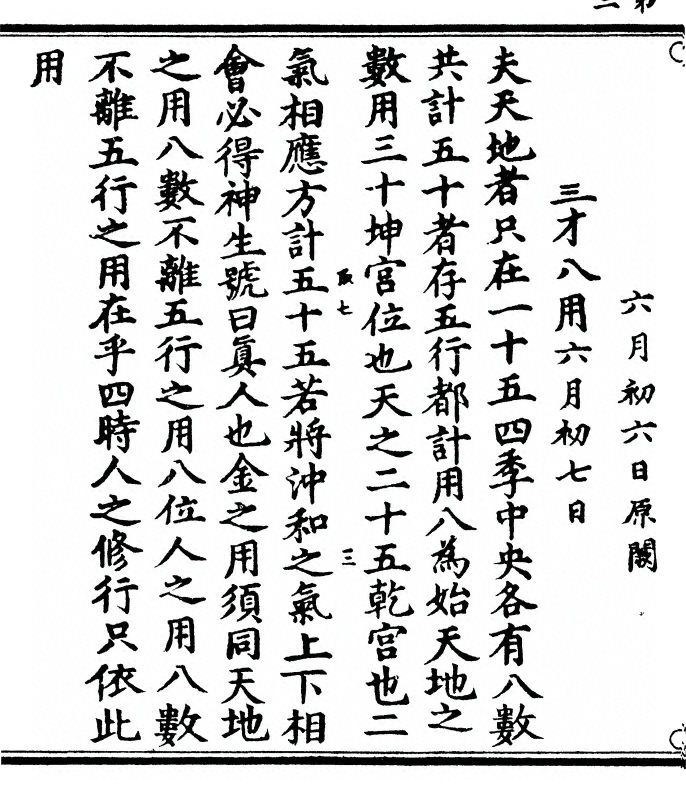 六月初六日原闕
三才八用六月初七日
夫天地者只在一十五四季中央各有八數
共計五十者存五行都計用八為始天地之
數用三十坤宮位也天之二十五乾宮也二
七 三
氣相應方計五十五若將沖和之氣上下相
會必得神生號曰眞人也金之用須同天地
之用八數不離五行之用八位人之用八數
不離五行之用在乎四時人之修行只依此
用